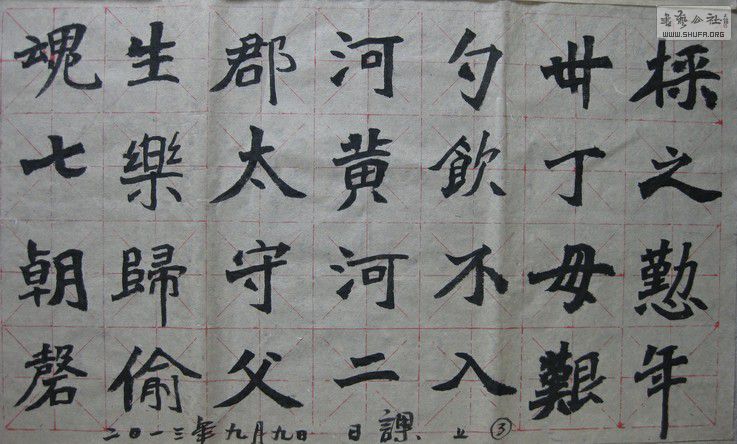 採之懃年
卅丁母艱
勺飲不入
河黃河二
郡太守父
生樂歸偷
魂七朝磬
二〇一三年九月九日 日課 上 ③
書藝公社
WWW.SHUFA.ORG